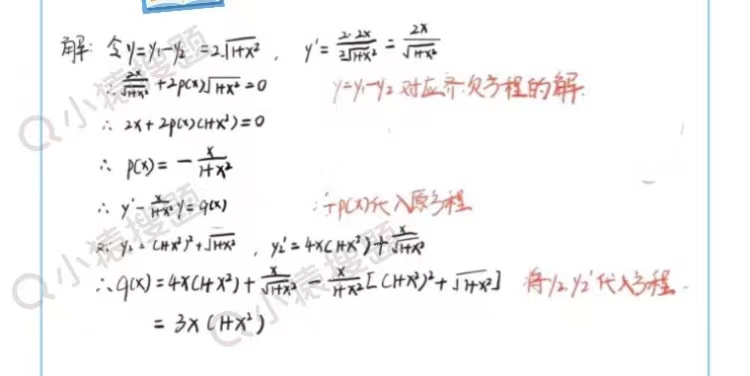 解: 令y=y₁-y₂ =2√1+x², y'= 2·2x/2√1+x² = 2x/√1+x²
∴ 2x/√1+x² +2p(x)√1+x²=0 y=y₁-y₂ 对应齐次方程的解.
∴ 2x+2p(x)(1+x²)=0
∴ p(x)= - x/1+x²
∴ y'- x/1+x² y=q(x) 将p(x)代入原方程
又 y₂=(1+x²)²+√1+x², y₂'=4x(1+x²)+ x/√1+x²
∴q(x)=4x(1+x²)+ x/√1+x² - x/1+x² [(1+x²)²+√1+x²] 将y₂,y₂'代入方程.
= 3x(1+x²)
小猿搜题
小猿搜题
小猿搜题